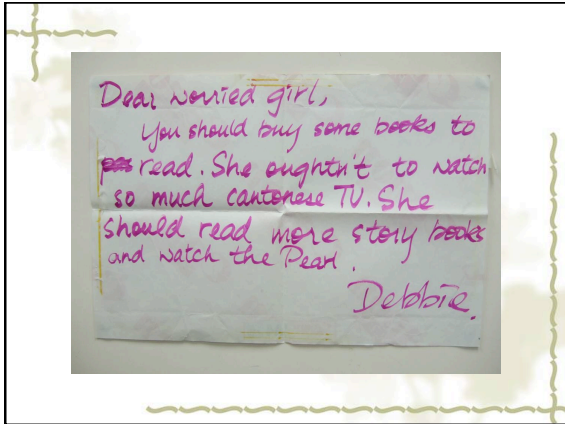 Dear worried girl,
You should buy some books to
read. She oughtn't to watch
so much cantonese TV. She
should read more story books
and watch the Pearl.
Debbie.